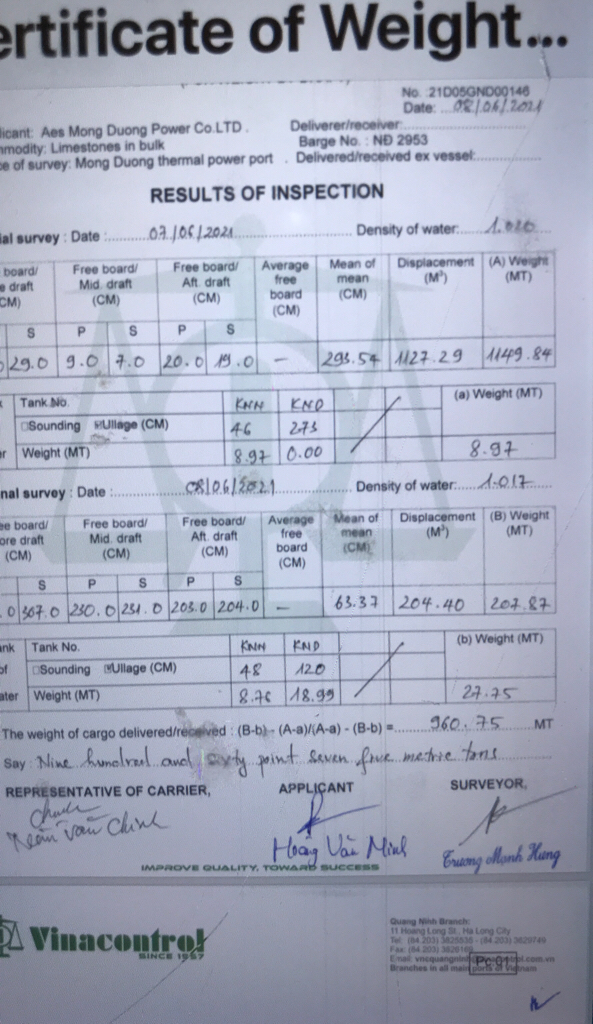 ertificate of Weight...
No. :21D05GND00146
Date: ...08/06/2021
licant: Aes Mong Duong Power Co.LTD . Deliverer/receiver:
modity: Limestones in bulk Barge No. : NĐ 2953
e of survey: Mong Duong thermal power port . Delivered/received ex vessel:
RESULTS OF INSPECTION
ial survey : Date : 07/06/2021 Density of water: 1.020
board/ Free board/ Free board/ Average Mean of Displacement (A) Weight
e draft Mid. draft Aft. draft free mean (M³) (MT)
CM) (CM) (CM) board (CM)
(CM)
S P S P S
29.0 9.0 7.0 20.0 19.0 – 293.54 1127.29 1149.84
Tank No. KNN KND (a) Weight (MT)
Sounding Ullage (CM) 46 273
er Weight (MT) 8.97 0.00 8.97
nal survey : Date : 08/06/2021 Density of water: 1.017
ee board/ Free board/ Free board/ Average Mean of Displacement (B) Weight
ore draft Mid. draft Aft. draft free mean (M³) (MT)
(CM) (CM) (CM) board (CM)
(CM)
S P S P S
.0 307.0 230.0 231.0 203.0 204.0 – 63.37 204.40 207.87
ank Tank No. KNN KND (b) Weight (MT)
of Sounding Ullage (CM) 48 120
ater Weight (MT) 8.76 18.99 27.75
The weight of cargo delivered/received : (B-b) - (A-a)/(A-a) - (B-b) = 960.75 MT
Say : Nine hundred and sixty point seven five metric tons
REPRESENTATIVE OF CARRIER, APPLICANT SURVEYOR,
Trần Văn Chinh Hoàng Văn Minh Trương Mạnh Hùng
IMPROVE QUALITY, TOWARD SUCCESS
Vinacontrol
SINCE 1957
Quang Ninh Branch:
11 Hoang Long St., Ha Long City
Tel: (84.203) 3825535 - (84.203) 3829749
Fax: (84.203)
Email: vncquangninh@vinacontrol.com.vn
Branches in all main ports of Vietnam
Pc 01